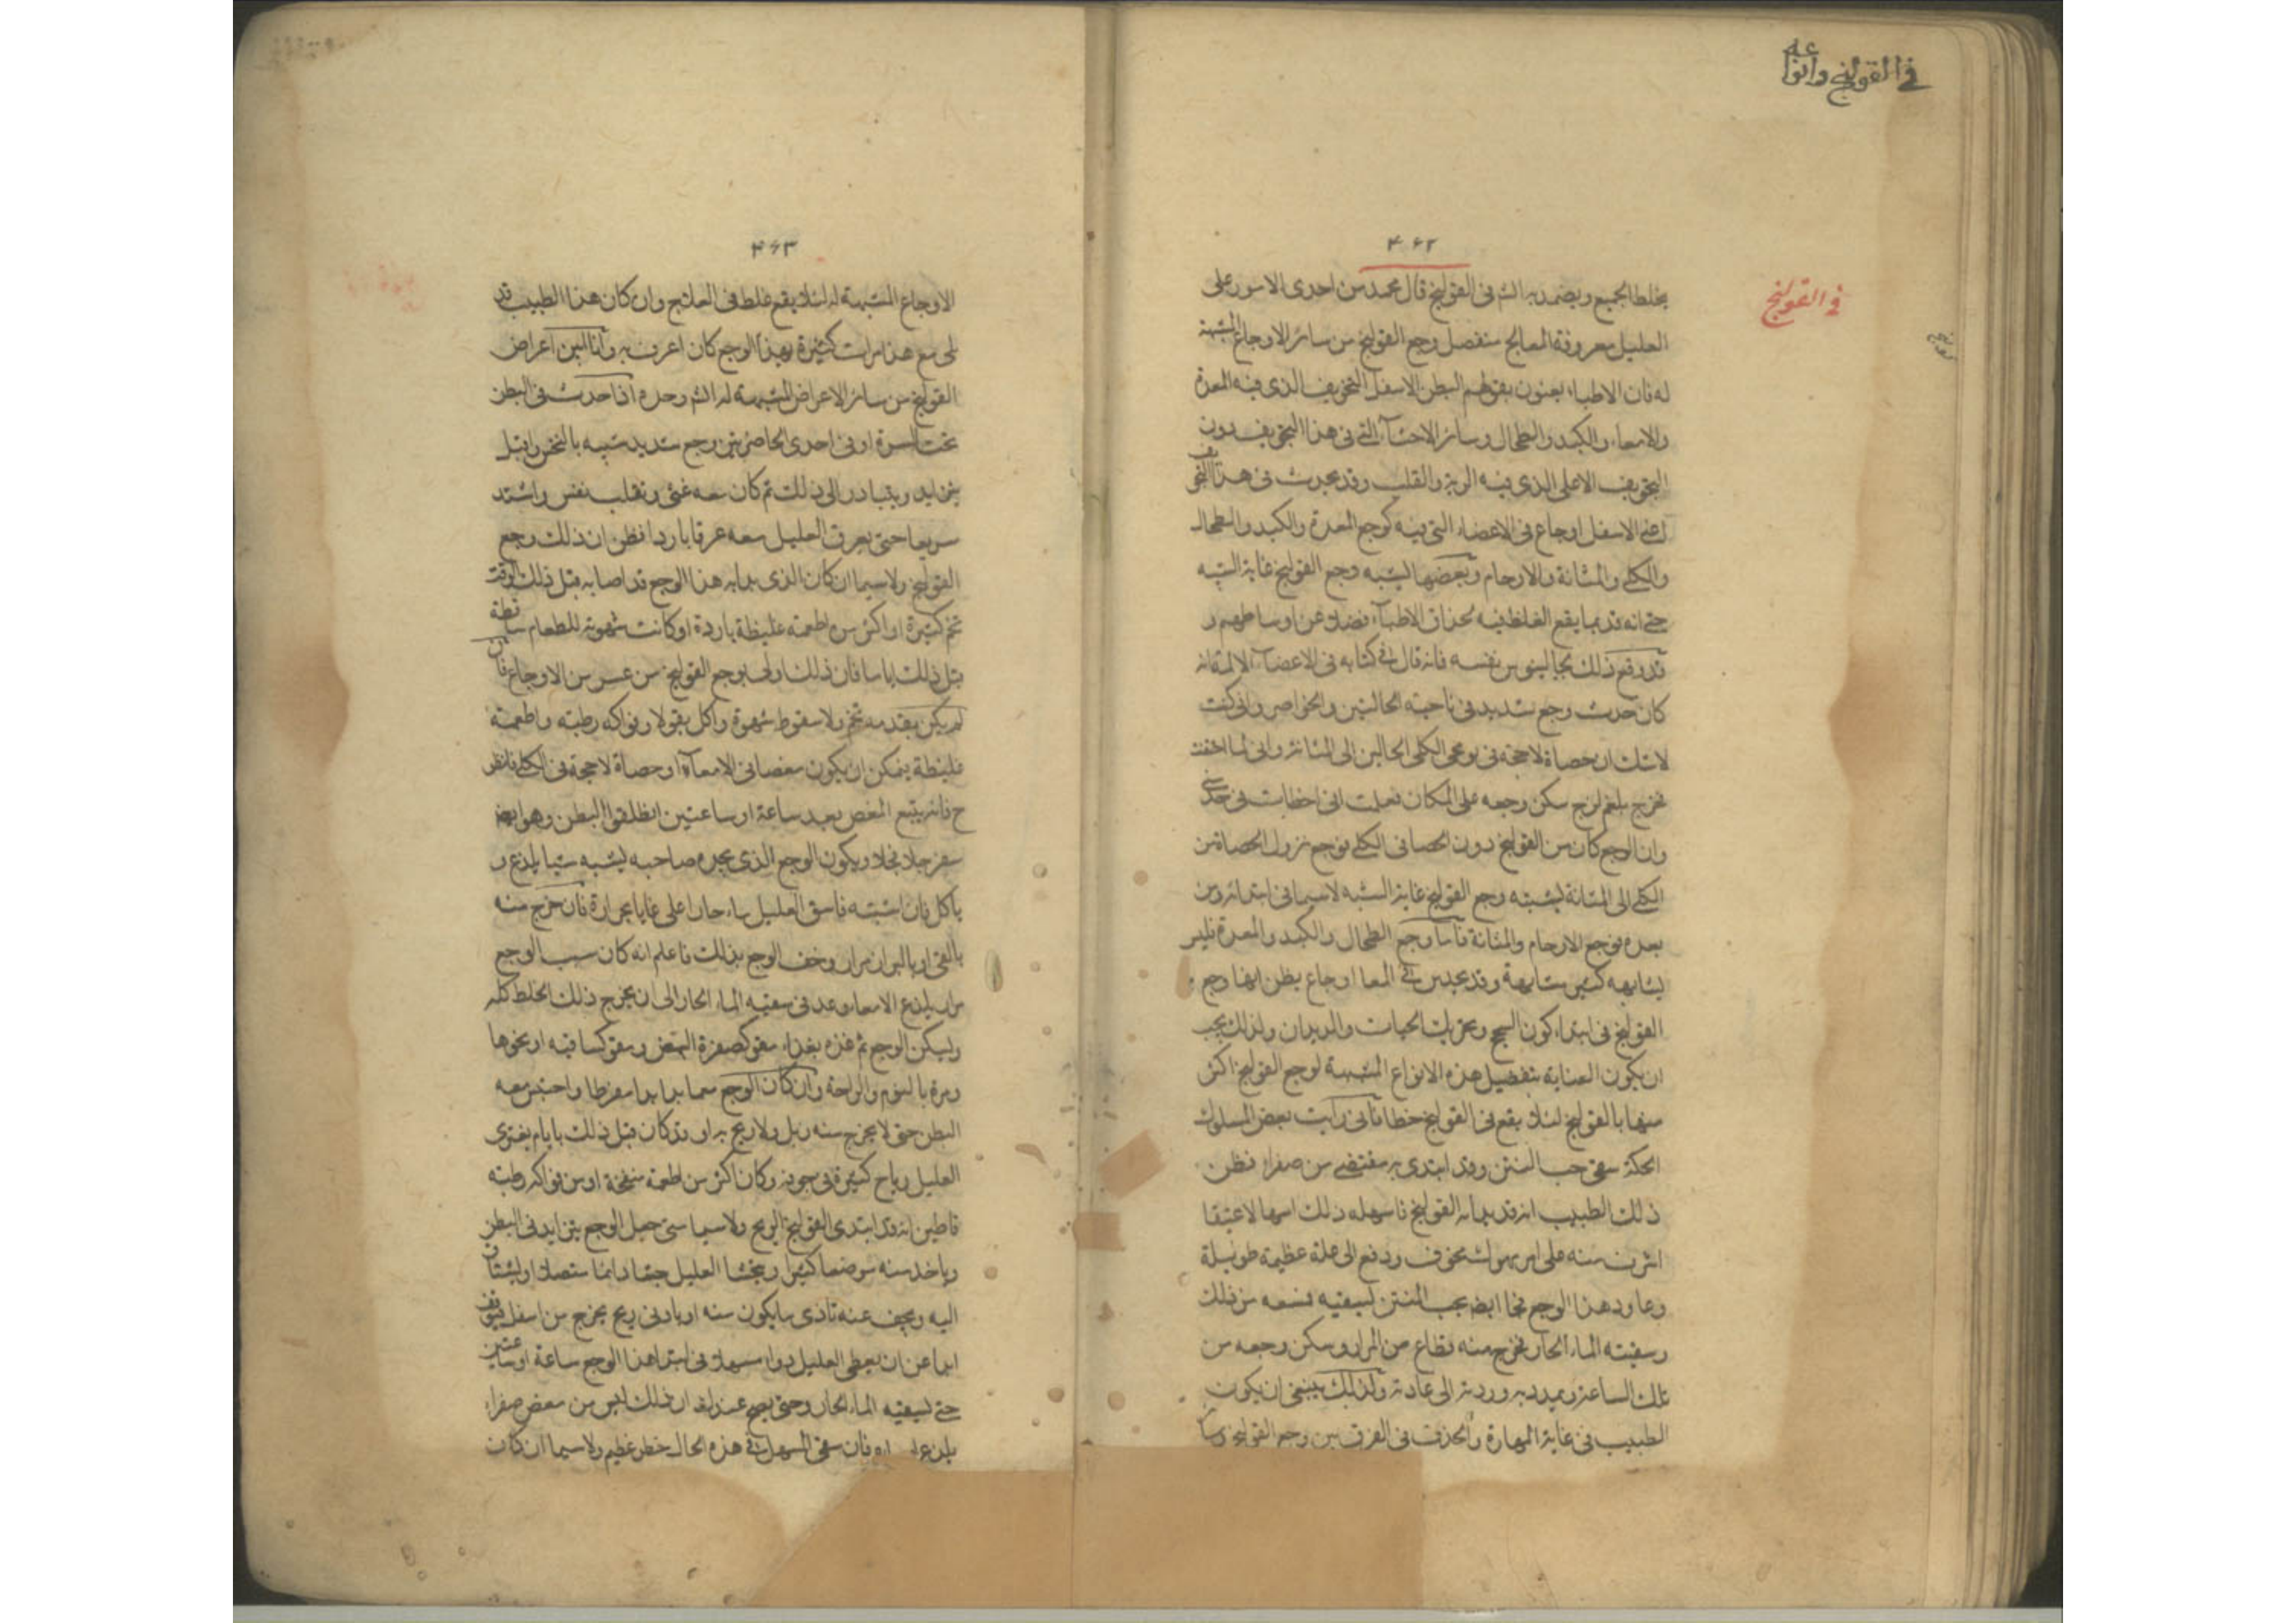 في القولنج وانواعه
في القولنج
۴۶۲
يخلط الجميع ويضمد به الشه في القولنج قال محمد من احدى الامور على
العليل معروفة المعالج بتفصيل وجع القولنج من سائر الاوجاع المشبهة
له فان الاطباء يعنون بقولهم البطن الاسفل التجويف الذي فيه المعدة
والامعاء والكبد والطحال وسائر الاحشآء التي في هذا التجويف دون
التجويف الاعلى الذي فيه الرية والقلب وقد يحدث في هذا التجويف
اعني الاسفل اوجاع في الاعضاء التي فيه كوجع المعدة والكبد والطحال
والكلى والمثانة والارحام وبعضها يشبه وجع القولنج غاية الشبه
حتى انه قد ربما يقع الغلط فيه لحذاق الاطبآء فضلا عن اوساطهم و
قد وقع ذلك لجالينوس نفسه فانه قال في كتابه في الاعضآء الالمة انه
كان حدث وجع شديد في ناحية الحالبين والخواصر واني كنت
لا اشك ان حصاة لاحجة في الكلى الحالبين الى المثانة واني لما احتقنت
فخرج بلغم لزج سكن وجعه على المكان فعلمت اني اخطات في حدسي
وان الوجع كان من القولنج دون الحصا في الكلى فوجع نزول الحصاة من
الكلى الى المثانة يشبه وجع القولنج غاية الشبه لا سيما في ابتدائه ومن
بعده فوجع الارحام والمثانة فاما وجع الطحال والكبد والمعدة فليس
يشابهه كثير مشابهة وقد يحدث في المعا اوجاع يظن انها وجع
القولنج في ابتداء كون السحج وتحريك الحيات والديدان ولذلك يجب
ان يكون العناية بتفصيل هذه الانواع المشبهة لوجع القولنج اكثر
منها بالقولنج لئلا يقع في القولنج خطا فاني رايت بعض الملوك
الحكة سقى حب المنتن وقد ابتدى به مغص من صفراء فظن
ذلك الطبيب انه قد بدأ به القولنج فاسهله ذلك اسهالا عنيفا
اشرف منه على امر مهول مخوف ودفع الى علة عظيمة طويلة
وعاود هذا الوجع فجا ايضا بحب المنتن ليسقيه فمنعه من ذلك
وسقيته الماء الحار فخرج منه من المرار وسكن وجعه من
تلك الساعة وردته الى عادته ولذلك ينبغي ان يكون
الطبيب في غاية المهارة والحذق في الفرق بين وجع القولنج وسا
۴۶۳
الاوجاع المشبهة له لئلا يقع غلط في العلاج وان كان هذا الطبيب قد
مع هذا مرات كثيرة بهذا الوجع كان اعرف به وانا ابين اعراض
القولنج من سائر الاعراض المشبهة له الشه وحده اذا حدث في البطن
تحت السرة او في احدى الخاصرتين وجع شديد شبيه بالنخس واقبل
يتزايد ويتبادر الى ذلك ثم كان معه غثي وتقلب نفس واشتد
سريعا حتى يعرق العليل معه عرقا باردا فظن ان ذلك وجع
القولنج ولا سيما ان كان الذي بدا به هذا الوجع قد اصابه قبل ذلك الوقت
تخم كثيرة او اكثر من اطعمة غليظة باردة او كانت شهوته للطعام ساقطة
قبل ذلك اياما فان ذلك اولى بوجع القولنج من غيره من الاوجاع فان
لم يكن تقدمه تخم ولا سقوط شهوة واكل بقولا وفواكه رطبة واطعمة
غليظة يمكن ان يكون مغصا في الامعآء او حصاة لاحجة في الكلى فانظر
ح فانه يتبع المغص بعد ساعة او ساعتين انطلاق البطن وهو ايضا
ويكون الوجع الذي يجده صاحبه يشبه شيا يلذع و
ياكل فان اشتبه فاسق العليل ماء حارا على غايا حرارة فان خرج منه
بالقي او بالبراز مرار وخف الوجع بذلك فاعلم انه كان سبب الوجع
مرار يلذع الامعاء وعد في سقيه الماء الحار الى ان يخرج ذلك الخلط كله
ويسكن الوجع ثم غذه بغذاء مقو كصفرة البيض وسقوكسافيه او نحوها
ومره بالنوم والراحة وان كان الوجع مما بدا بدا مفرطا واحتبس معه
البطن حتى لا يخرج منه زبل ولا ريح به او قد كان قبل ذلك بايام يعتري
العليل رياح كثيرة في جوفه وكان اكثر من اطعمة منفخة او من فواكه رطبة
فاظن انه قد ابتدى القولنج الريح ولا سيما متى جعل الوجع يتزايد في البطن
وياخذ منه موضعا كثيرا ويجشا العليل جشا دائما متصلا او يشتاق
اليه ويخف عنه تاذي ما يكون منه او بادنى ريح يخرج من اسفل فتوقف
ابدا عن ان يعطى العليل دواء مسهلا في ابتدا هذا الوجع ساعة او ساعتين
حتى تسقيه الماء الحار وحتى يصح عندك ان ذلك ليس من مغص صفراء
فان سقي المسهل في هذه الحال خطر عظيم ولا سيما ان كان